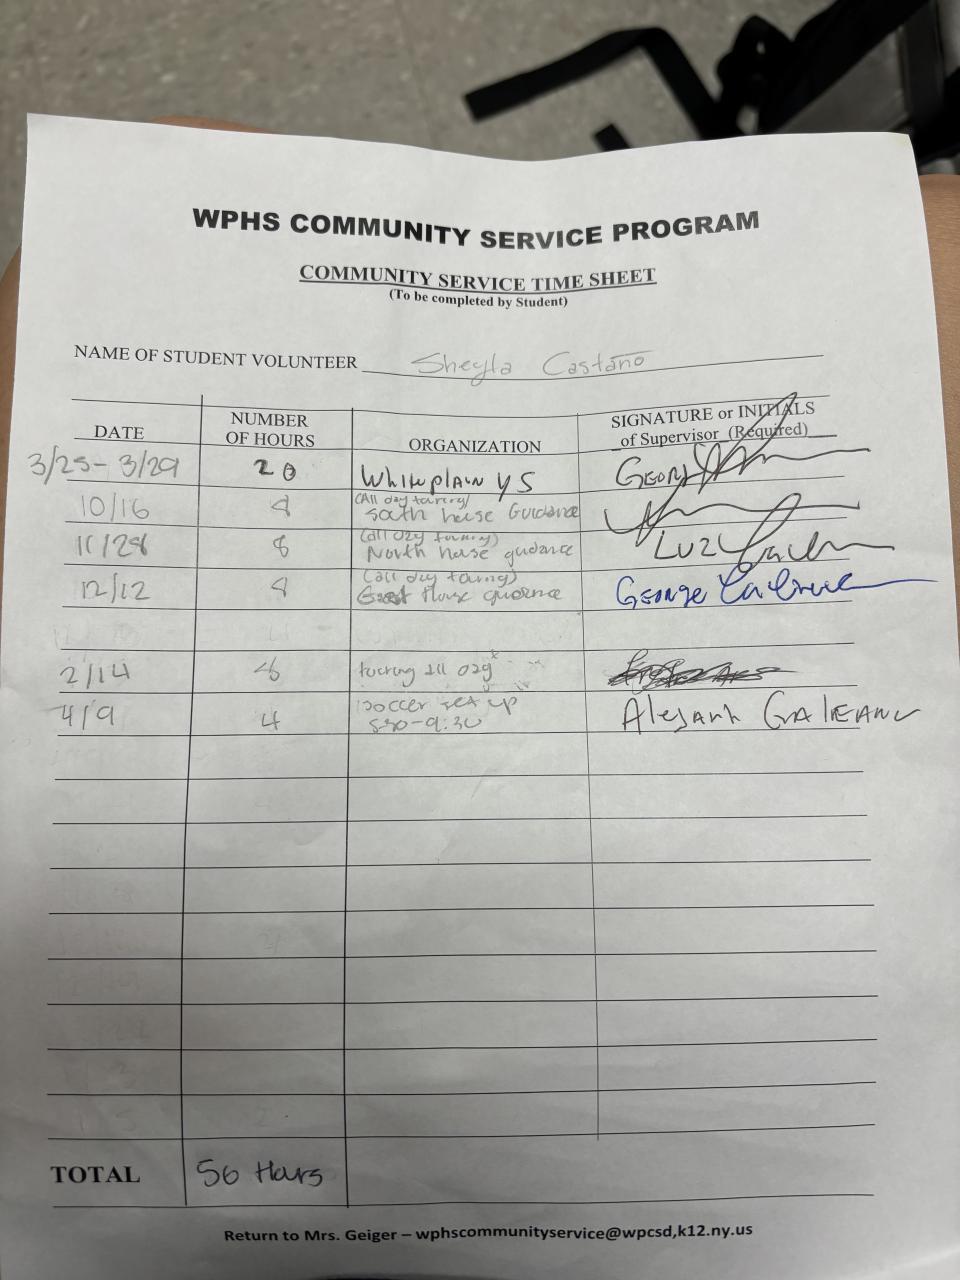 WPHS COMMUNITY SERVICE PROGRAM
COMMUNITY SERVICE TIME SHEET
(To be completed by Student)
NAME OF STUDENT VOLUNTEER Sheyla Castaño
DATE NUMBER OF HOURS ORGANIZATION SIGNATURE or INITIALS of Supervisor (Required)
3/25-3/29 20 Whiteplain YS
10/16 8 (All day touring) South house Guidance
11/28 8 (all day touring) North house guidance LUZ
12/12 8 (all day touring) House guidance George
2/14 touring all day
4/9 4 soccer set up Galeano
TOTAL 56 Hours
Return to Mrs. Geiger – wphscommunityservice@wpcsd,k12.ny.us